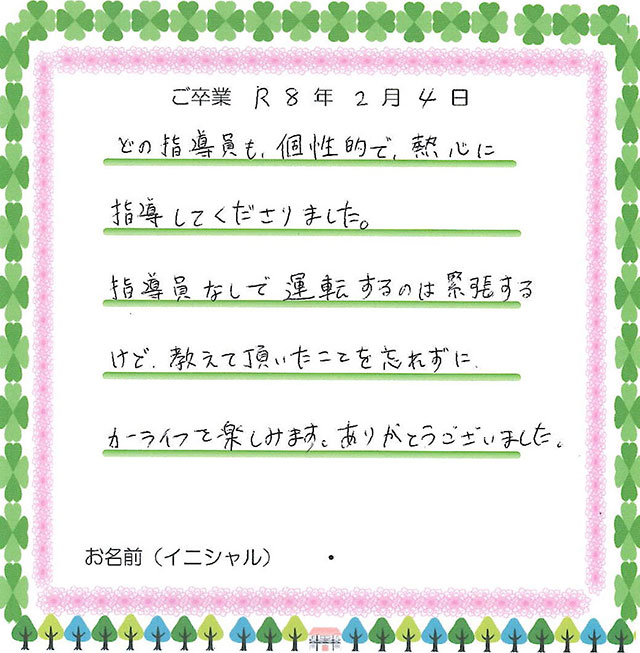 ご卒業 R8年2月4日
どの指導員も、個性的で、熱心に
指導してくださりました。
指導員なしで運転するのは緊張する
けど、教えて頂いたことを忘れずに、
カーライフを楽しみます。ありがとうございました。
お名前（イニシャル） ・